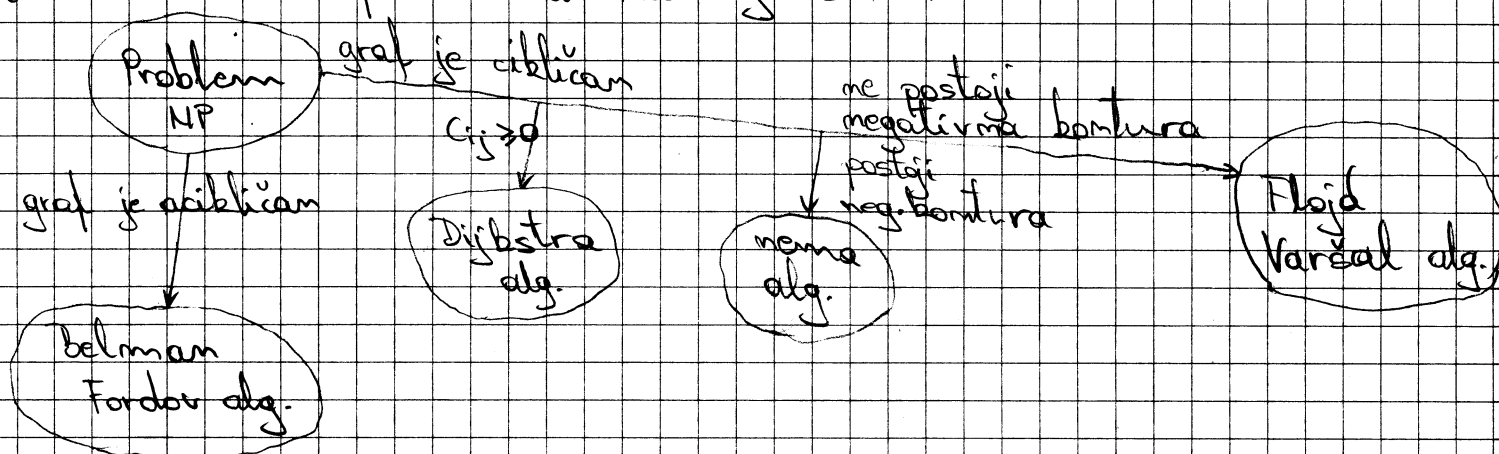 Problem
NP
graf je cikličan
Cij ≥ 0
ne postoji
negativna kontura
postoji
neg. kontura
graf je acikličan
Dijkstra
alg.
nema
alg.
Flojd
Varšal alg.
Belman
Fordov alg.